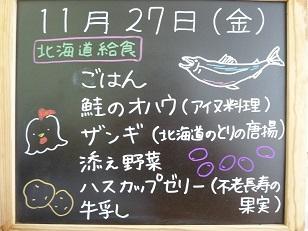 11月27日(金)
北海道給食
ごはん
鮭のオハウ(アイヌ料理)
ザンギ(北海道のとりの唐揚)
添え野菜
ハスカップゼリー(不老長寿の
果実)
牛乳